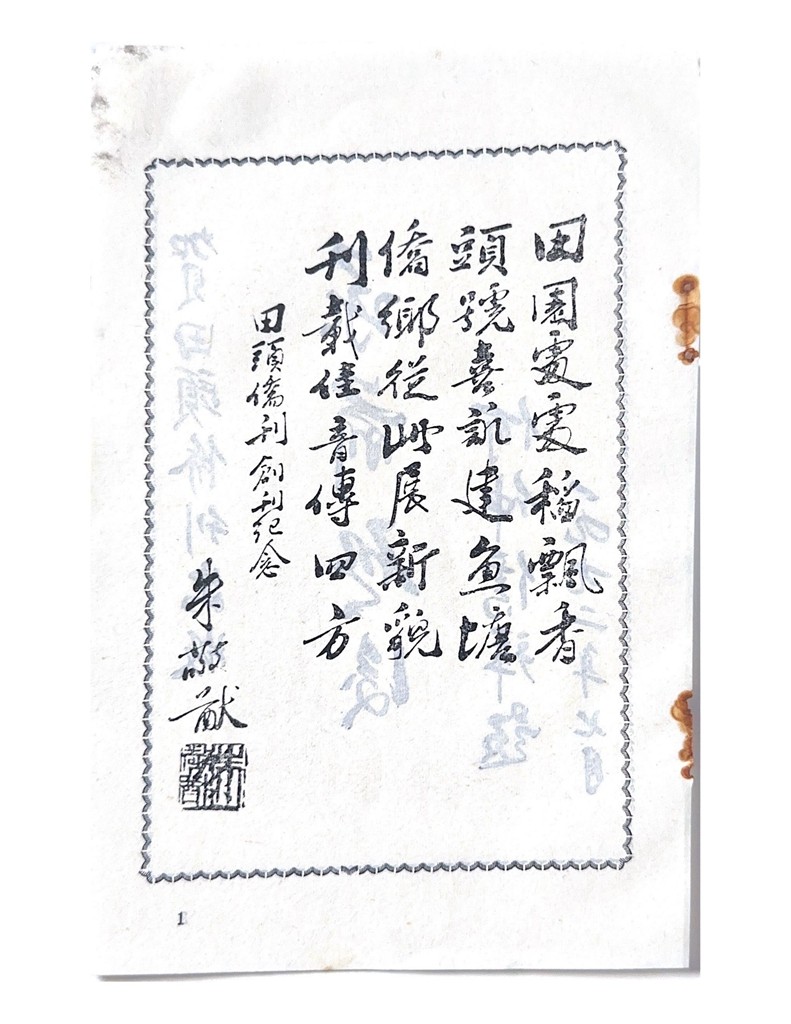 田園處處稻飄香
頭號喜訊建魚塘
僑鄉從此展新貌
刊載佳音傳四方
田頭僑刊創刊紀念
朱敬猷
1